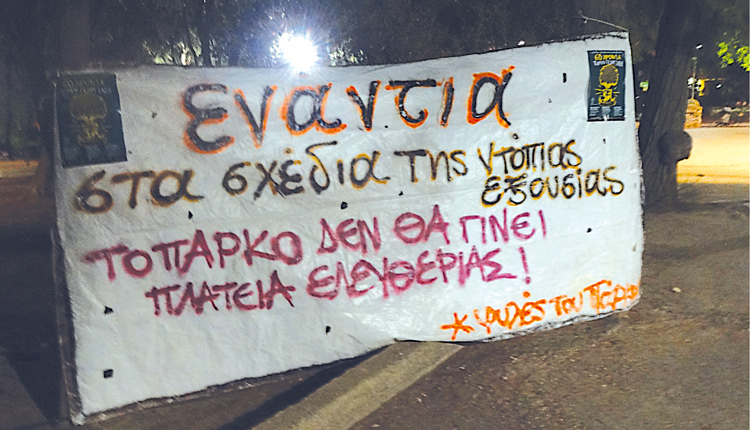 εναντια
στα σχέδια της ντόπιας
εξουσίας
ΤΟ ΠΑΡΚΟ ΔΕΝ ΘΑ ΓΙΝΕΙ
ΠΛΑΤΕΙΑ ΕΛΕΥΘΕΡΙΑΣ!
* φυλές του
60 ΧΡΟΝΙΑ